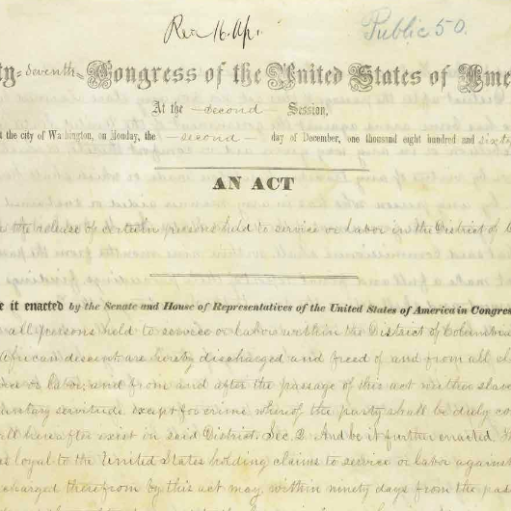 Rec 16. Ap.
Public 50.
ty-seventh-Congress of the United States of Ame
At the -second- Session,
t the city of Washington, on Monday, the -second- day of December, one thousand eight hundred and sixty
AN ACT
the release of certain persons held to service or labor in the District of C
e it enacted by the Senate and House of Representatives of the United States of America in Congres
all persons held to service or labor within the District of Columbia
African descent are hereby discharged and freed of and from all cl
ice or labor; and from and after the passage of this act neither slave
oluntary servitude except for crime whereof the party shall be duly co
all hereafter exist in said District. Sec. 2. And be it further enacted
s loyal to the United States holding claims to service or labor against
charged therefrom by this act may, within ninety days from the pas